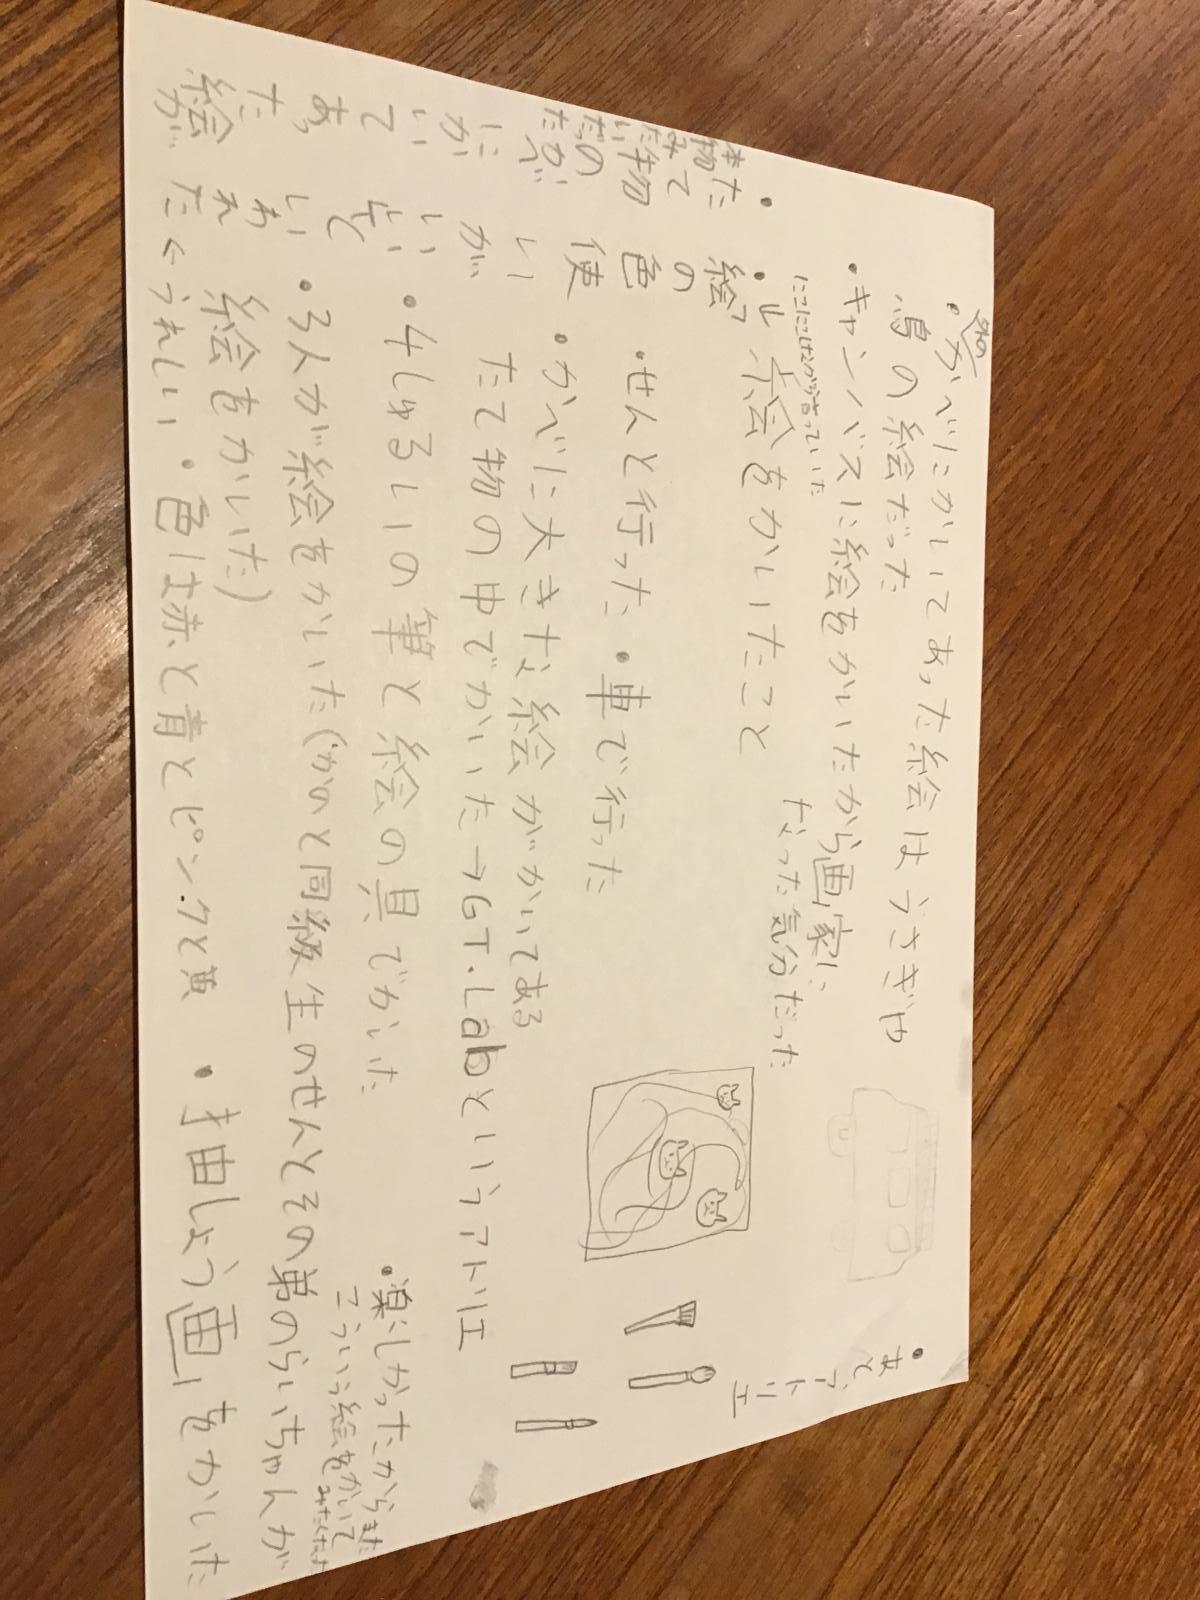 ・外のかべにかいてあった絵はうさぎや
鳥の絵だった
・キャンバスに絵をかいたから画家に
なった気分だった
にこにこしながら言っていた
・絵をかいたこと
・せんと行った ・車で行った
・かべに大きな絵がかいてある
たて物の中でかいた→GT.Labというアトリエ
・4しゅるいの筆と絵の具でかいた
・3人が絵をかいた(かのと同級生のせんとその弟のらいちゃんが
絵をかいた)
・色は赤と青とピンクと黄
・抽しょう画をかいた
・絵の色使いがいいと
いわれた
←うれしい
・
た
て
物
のかべ
にかいてあった
絵が
・楽しかったからまた
こういう絵をかいて
みたくなった
・
アトリエ